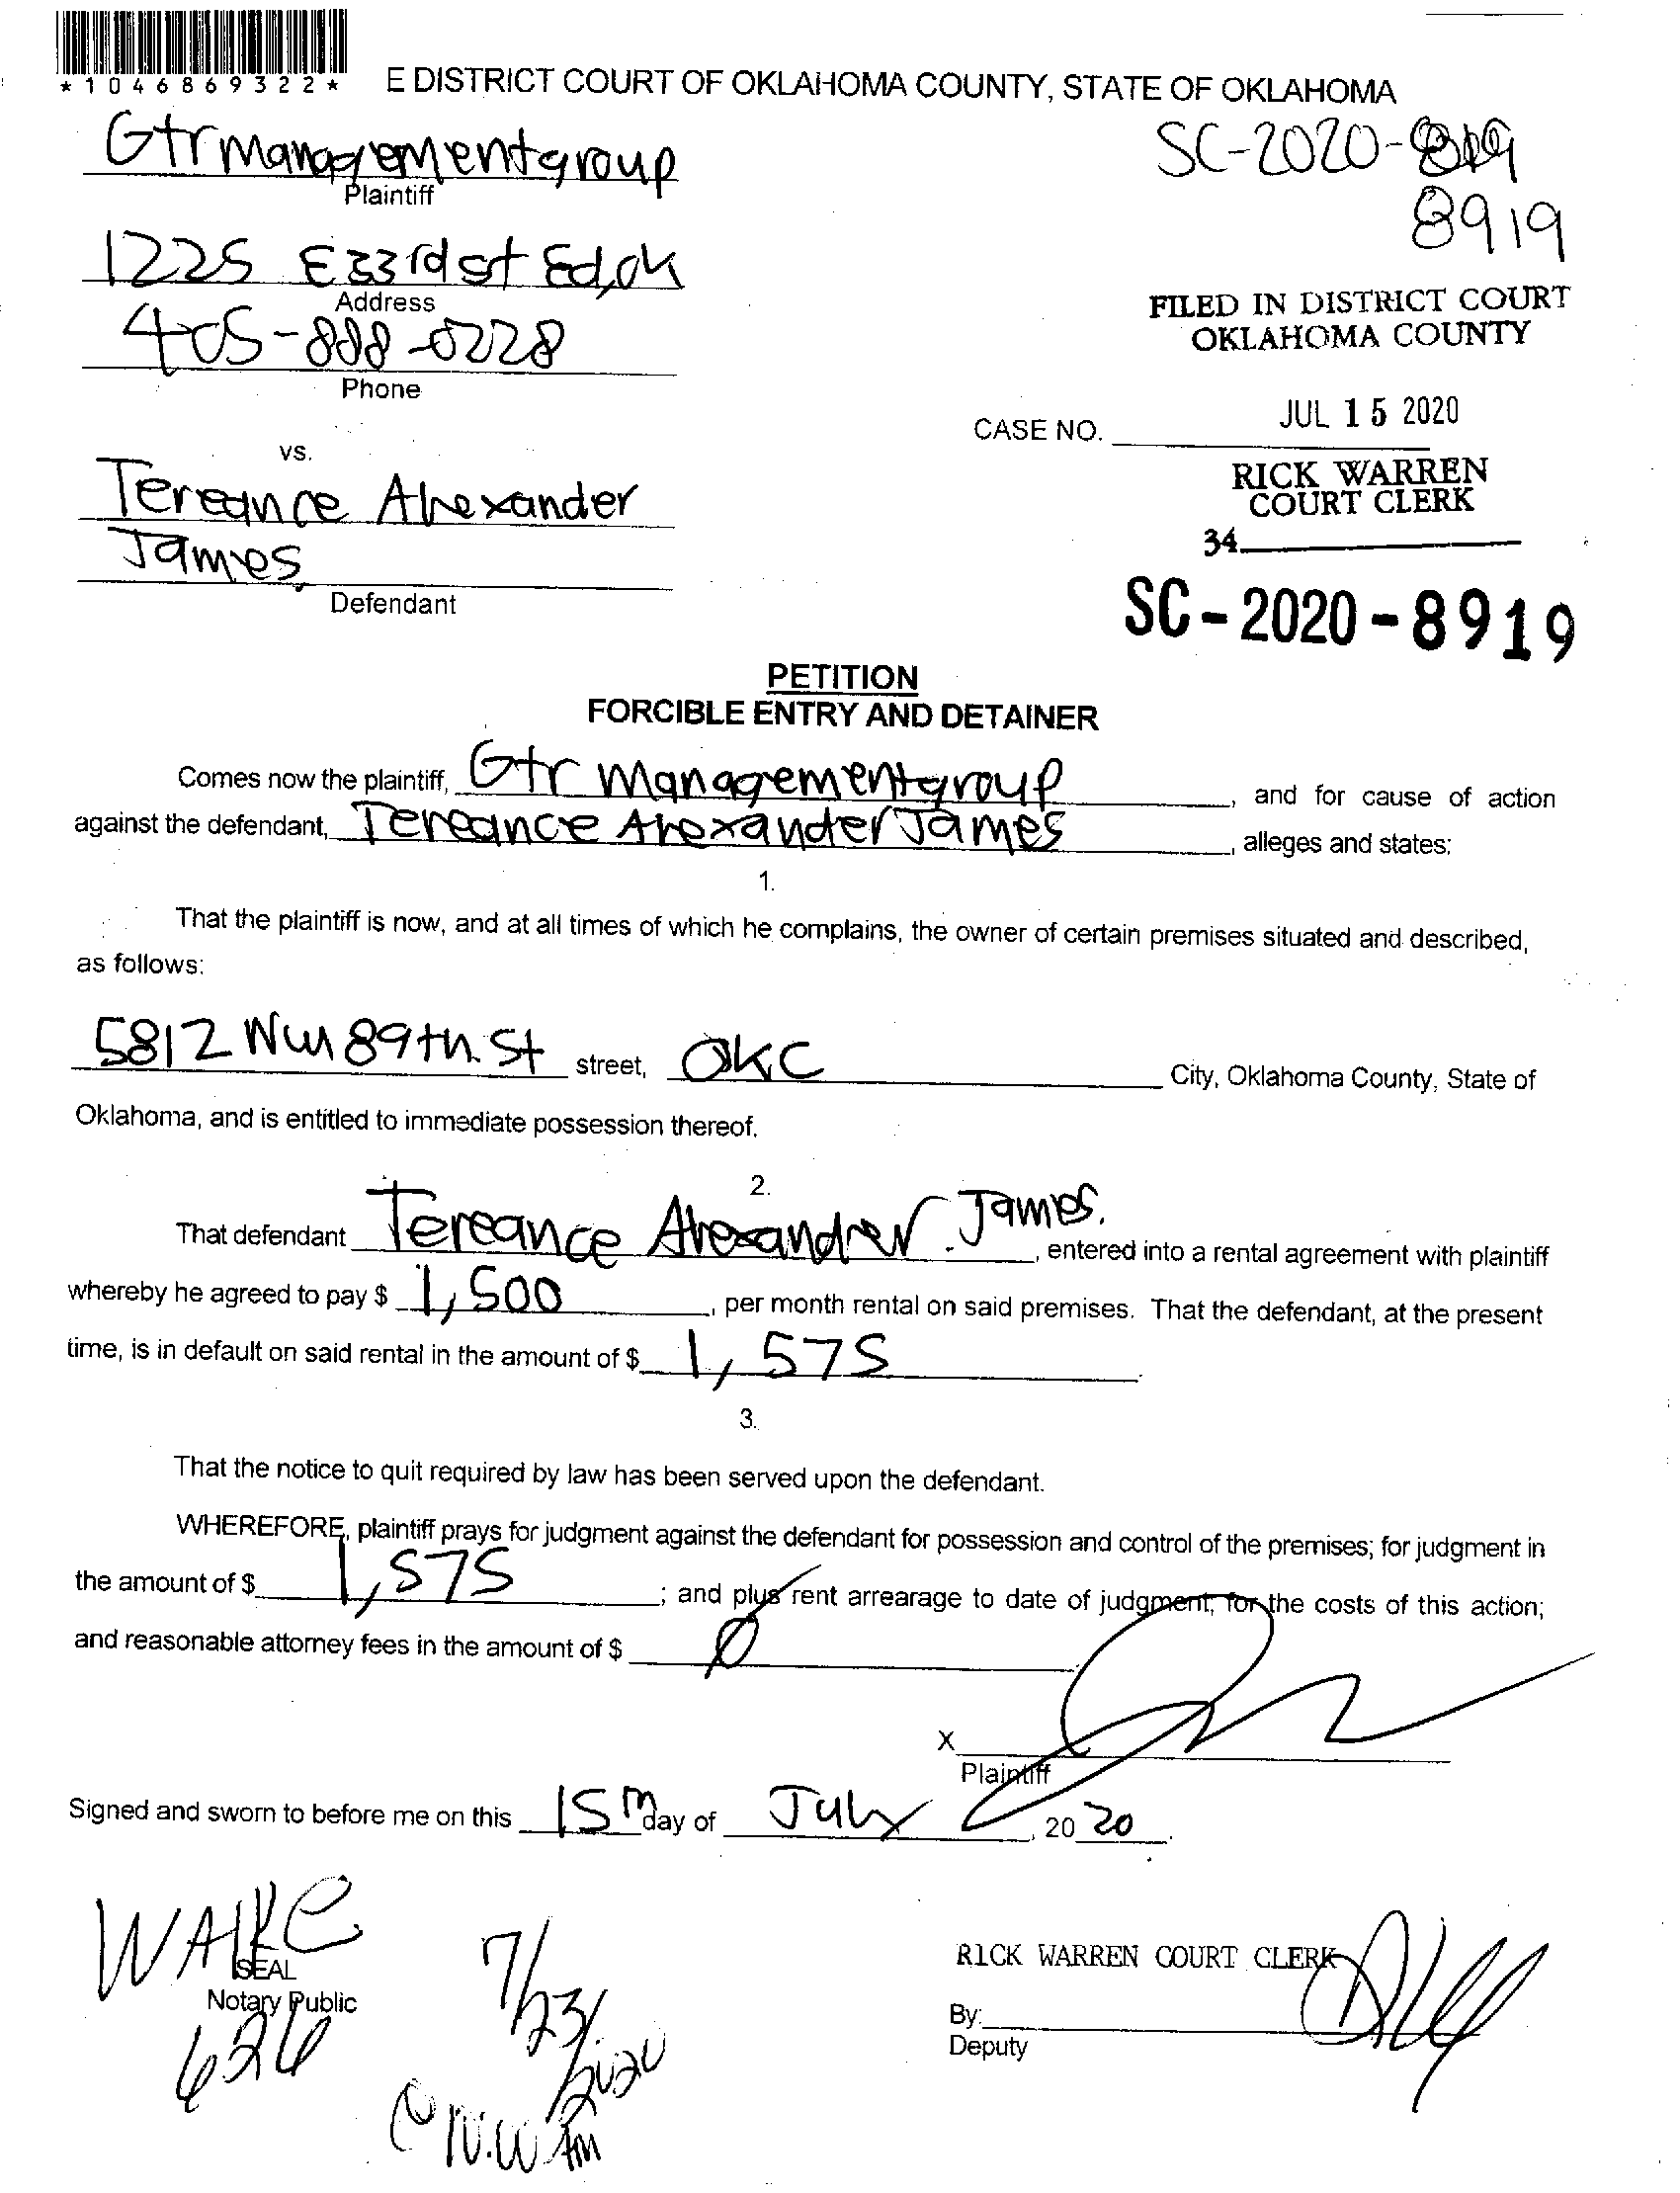 *1046869322*
E DISTRICT COURT OF OKLAHOMA COUNTY, STATE OF OKLAHOMA
Gtr Managementgroup
Plaintiff
SC-2020-
8919
1225 E 33rd st Ed, OK
Address
405-888-0228
Phone
FILED IN DISTRICT COURT
OKLAHOMA COUNTY
JUL 15 2020
CASE NO.
RICK WARREN
COURT CLERK
34
vs.
Tereance Alexander
James
Defendant
SC-2020-8919
PETITION
FORCIBLE ENTRY AND DETAINER
Comes now the plaintiff, Gtr Managementgroup, and for cause of action
against the defendant, Tereance Alexander James, alleges and states:
1.
That the plaintiff is now, and at all times of which he complains, the owner of certain premises situated and described,
as follows:
5812 NW 89th St street, OKC City, Oklahoma County, State of
Oklahoma, and is entitled to immediate possession thereof.
2.
That defendant Tereance Alexander James, entered into a rental agreement with plaintiff
whereby he agreed to pay $ 1,500, per month rental on said premises. That the defendant, at the present
time, is in default on said rental in the amount of $ 1,575.
3.
That the notice to quit required by law has been served upon the defendant.
WHEREFORE, plaintiff prays for judgment against the defendant for possession and control of the premises; for judgment in
the amount of $ 1,575; and plus rent arrearage to date of judgment; for the costs of this action;
and reasonable attorney fees in the amount of $ 0
X
Plaintiff
Signed and sworn to before me on this 15th day of July, 2020.
WALKE
SEAL
Notary Public
626
7/23/2020
@ 10:00 AM
RICK WARREN COURT CLERK
By:
Deputy